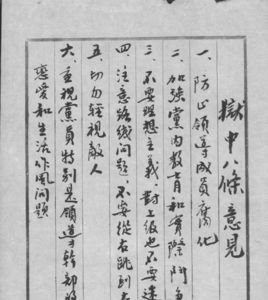 獄中八條意見
一、防止領導成員腐化
二、加強黨內教育和實際鬥爭
三、不要理想主義、對上級也不要迷
四、注意路線問題、不要從右跳到左
五、切勿輕視敵人
六、重視黨員特別是領導幹部的
戀愛和生活作風問題